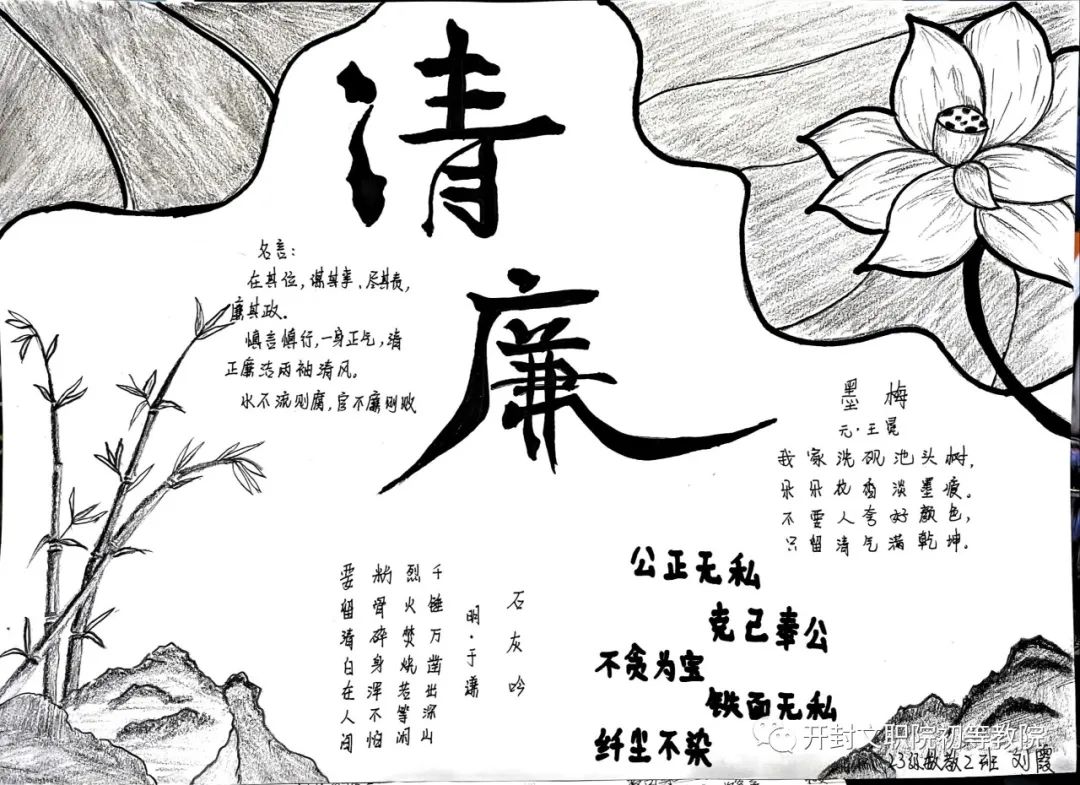 清
廉
名言：
在其位，谋其事、尽其责，
廉其政。
慎言慎行，一身正气，清
正廉洁两袖清风。
水不流则腐，官不廉则败
墨梅
元·王冕
我家洗砚池头树，
朵朵花香淡墨痕。
不要人夸好颜色，
只留清气满乾坤。
石灰吟
明·于谦
千锤万凿出深山
烈火焚烧若等闲
粉骨碎身浑不怕
要留清白在人间
公正无私
克己奉公
不贪为宝
铁面无私
纤尘不染
开封文职院初等教院
23级数教2班 刘霞